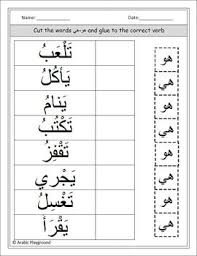 Name: Date:
Cut the words هو-هي and glue to the correct verb
تَلْعَبُ
هو
يَأْكُلُ
هي
يَنامُ
هو
تَكْتُبُ
هي
تَقْفِزُ
هو
يَجْري
هي
تَغْسِلُ
هو
يَقْرَأُ
هي
© Arabic Playground